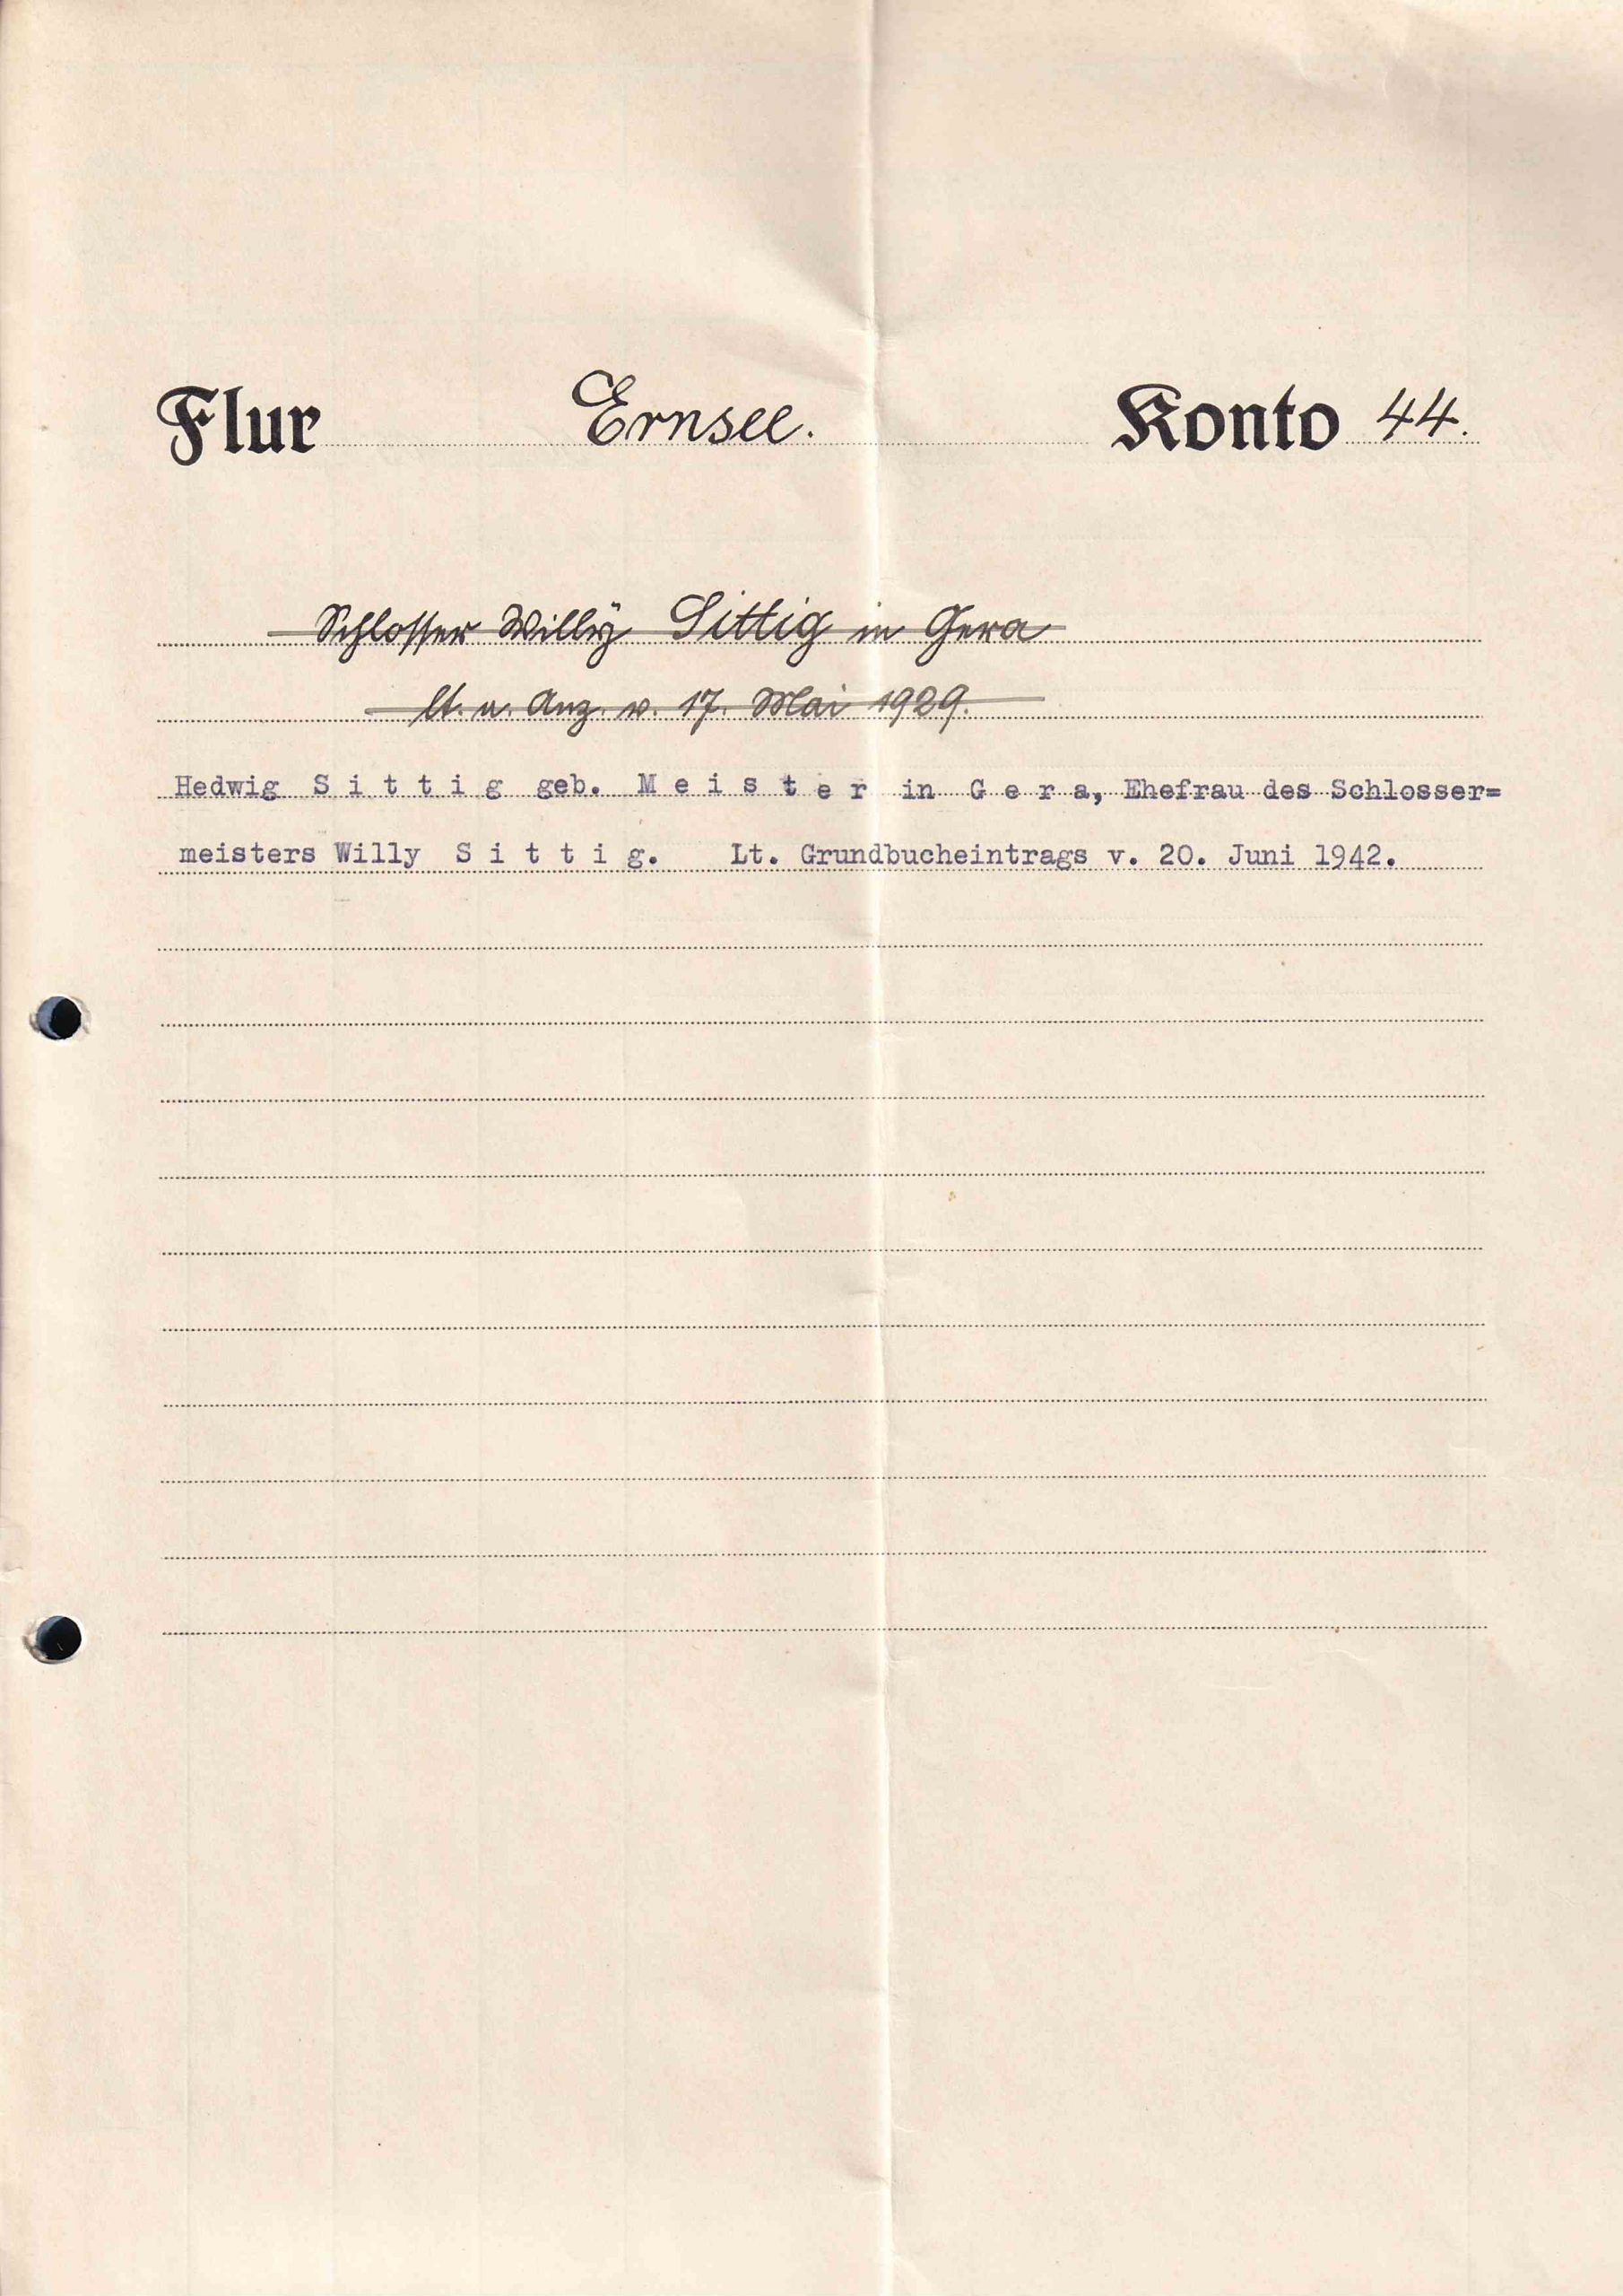 Flur Ernsee. Konto 44.
Schlosser Willy Sittig in Gera
lt. a. Anz. v. 17. Mai 1929.
Hedwig S i t t i g geb. M e i s t e r in G e r a, Ehefrau des Schlosser=
meisters Willy S i t t i g. Lt. Grundbucheintrags v. 20. Juni 1942.